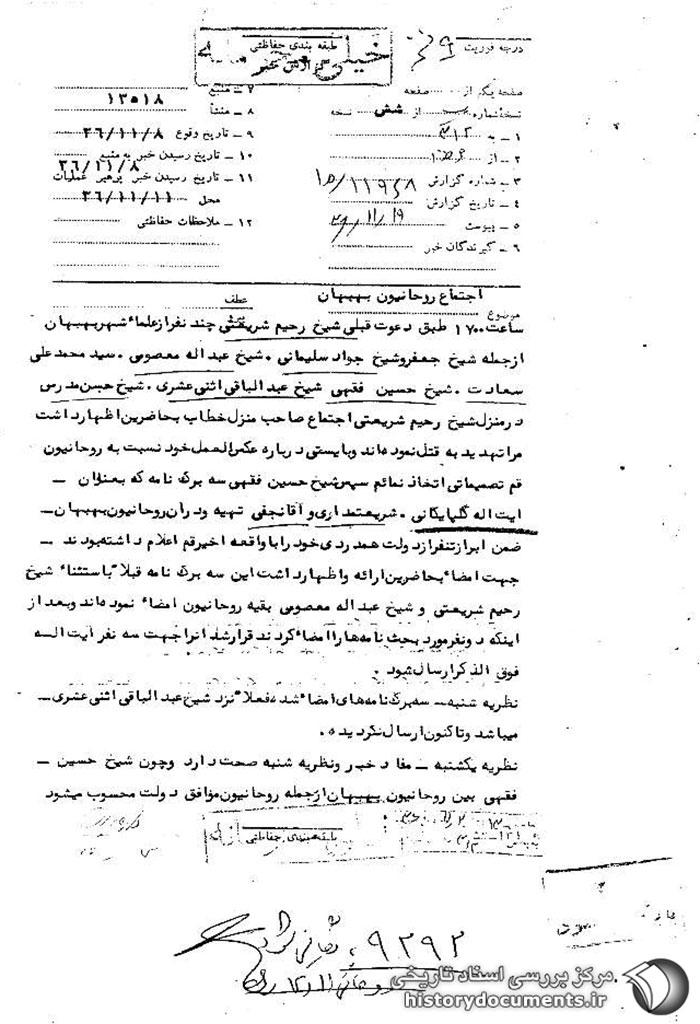 درجه فوریت
طبقه بندی حفاظتی
گزارش خبر
صفحه یکم از ... صفحه
نسخه شماره ... از شش نسخه
۱ - به ۳۱۲
۲ - از
۳ - شماره گزارش
۴ - تاریخ گزارش
۵ - پیوست
۶ - گیرندگان خبر
۷ - منبع ۱۳۵۱۸
۸ - منشأ
۹ - تاریخ وقوع ۳۶/۱۱/۸
۱۰ - تاریخ رسیدن خبر به منبع ۳۶/۱۱/۸
۱۱ - تاریخ رسیدن خبر برهبر عملیات
محل ۳۶/۱۱/۱۱
۱۲ - ملاحظات حفاظتی
موضوع اجتماع روحانیون بهبهان
عطف
ساعت ۱۷۰۰ طبق دعوت قبلی شیخ رحیم شریعتی چند نفر از علماء شهر بهبهان
ازجمله شیخ جعفر و شیخ جواد سلیمانی . شیخ عبداله معصومی . سید محمد علی
سعادت . شیخ حسین فقهی شیخ عبدالباقی اثنی عشری . شیخ حسن مدرس
در منزل شیخ رحیم شریعتی اجتماع صاحب منزل خطاب بحاضرین اظهار داشت
مرا تهدید به قتل نموده اند و بایستی درباره عکس العمل خود نسبت به روحانیون
قم تصمیماتی اتخاذ نمائم سپس شیخ حسین فقهی سه برگ نامه که بعنوان -
ایت اله گلپایگانی . شریعتمداری و آقا نجفی تهیه و در ان روحانیون بهبهان -
ضمن ابراز تنفر از دولت همدردی خود را با واقعه اخیر قم اعلام داشته بودند -
جهت امضاء بحاضرین ارائه و اظهار داشت این سه برگ نامه قبلاً باستثناء شیخ
رحیم شریعتی و شیخ عبداله معصومی بقیه روحانیون امضاء نموده اند و بعد از
اینکه دو نفر مورد بحث نامه ها را امضاء کردند قرار شد انرا جهت سه نفر ایت اله
فوق الذکر ارسال شود .
نظریه شنبه - سه برگ نامه های امضاء شده فعلاً نزد شیخ عبدالباقی اثنی عشری -
میباشد و تا کنون ارسال نگردیده .
نظریه یکشنبه - مفاد خبر و نظریه شنبه صحت دارد و چون شیخ حسین -
فقهی بین روحانیون بهبهان ازجمله روحانیون موافق دولت محسوب میشود
طبقه بندی حفاظتی
۹۲۹۲
مرکز بررسی اسناد تاریخی
historydocuments.ir